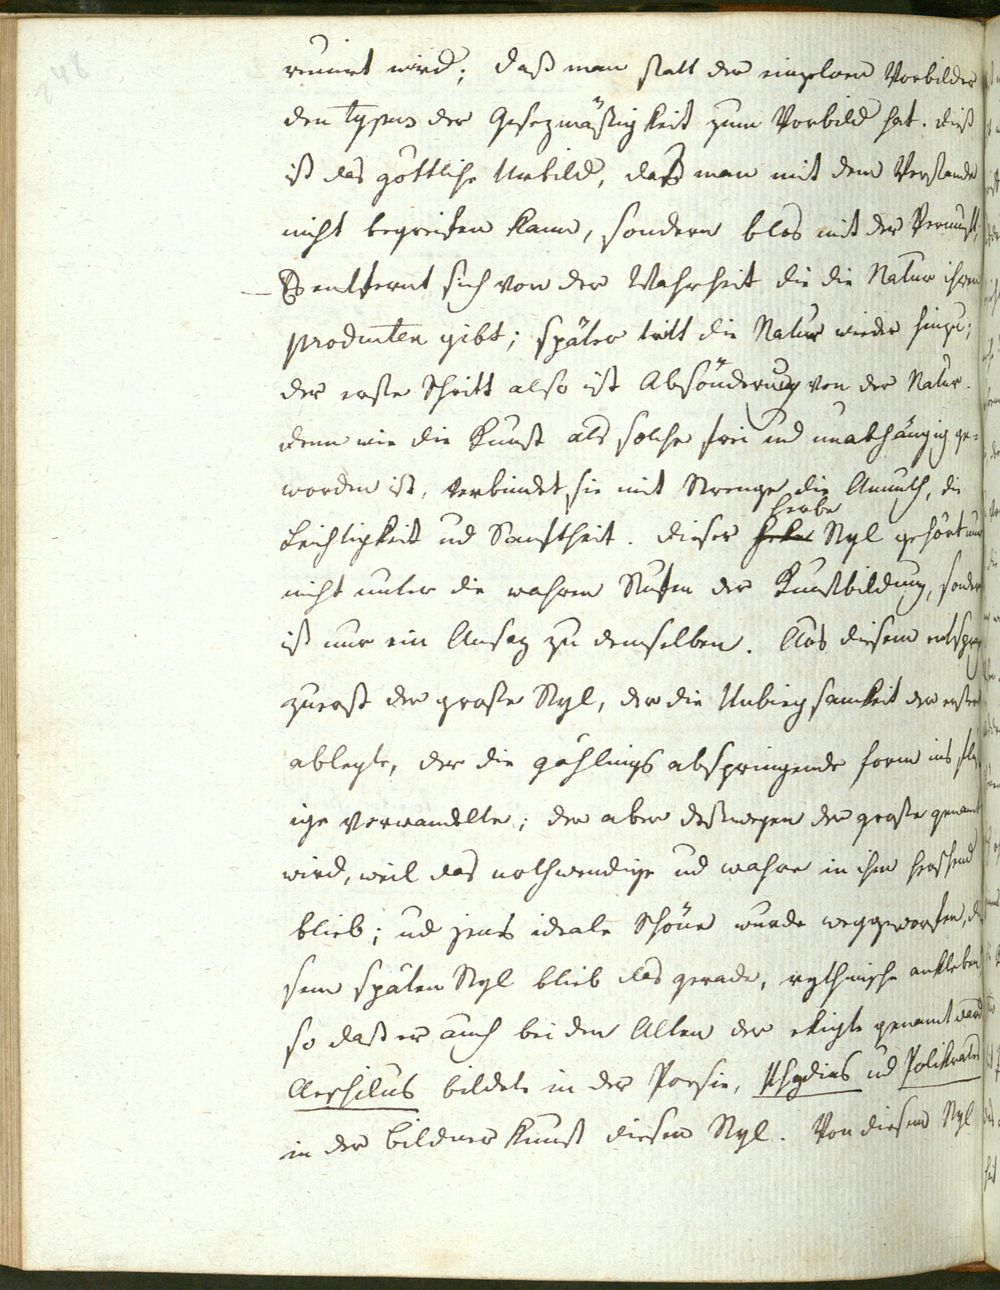 248
nimt wird; daß man statt der einzelnen Vorbilder
den Typus der Gesezmäßigkeit zum Vorbild hat. dieß
ist das göttliche Urbild, daß man mit dem Verstande
nicht begreifen kann, sondern blos mit der Vernunft,
– Es entfernt sich von der Wahrheit die die Natur ihren
Producten gibt; später tritt die Natur wieder hinzu;
der erste Schritt also ist Absönderung von der Natur.
denn wie die Kunst als solche frei und unabhängig ge=
worden ist, verbindet sie mit Strenge die Anmuth, die
Leichtigkeit ud Sanftheit. dieser herbe Styl gehört nun
nicht unter die wahren Stufen der Kunstbildung, sondern
ist nur ein Ansaz zu demselben. Aus diesem entsprang
zuerst der große Styl, der die Unbiegsamkeit der ersten
ablegte, der die gählings abspringende Form ins flü
ige verwandelte; der aber deßwegen der große genannt
wird, weil das nothwendige ud wahre in ihm herschend
blieb; ud jenes ideale Schöne wurde weggeworfen, die
sem späten Styl blieb das gerade, rythmische ankleben
so daß er auch bei den Alten der ekigte genannt ward
Aeschilus bildete in der Poesie, Phydias ud Polikrates
in der bildner Kunst diesen Styl. Von diesem Styl